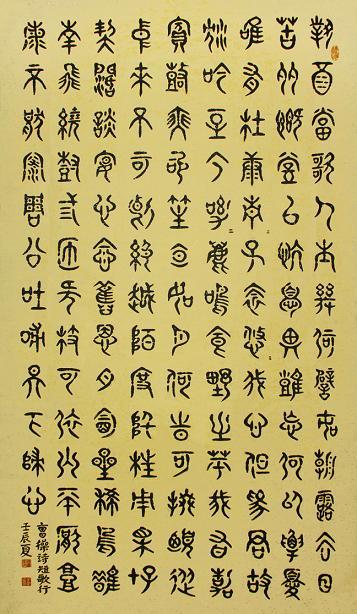 對酒當歌人生幾何譬如朝露去日
苦多慨當以慷憂思難忘何以解憂
唯有杜康青々子衿悠々我心但為君故
沉吟至今呦々鹿鳴食野之苹我有嘉
賓鼓瑟吹笙明々如月何時可掇憂從
中來不可斷絕越陌度阡枉用相存
契闊談讌心念舊恩月明星稀烏鵲
南飛繞樹三匝何枝可依山不厭高
海不厭深周公吐哺天下歸心
曹操詩短歌行
壬辰夏